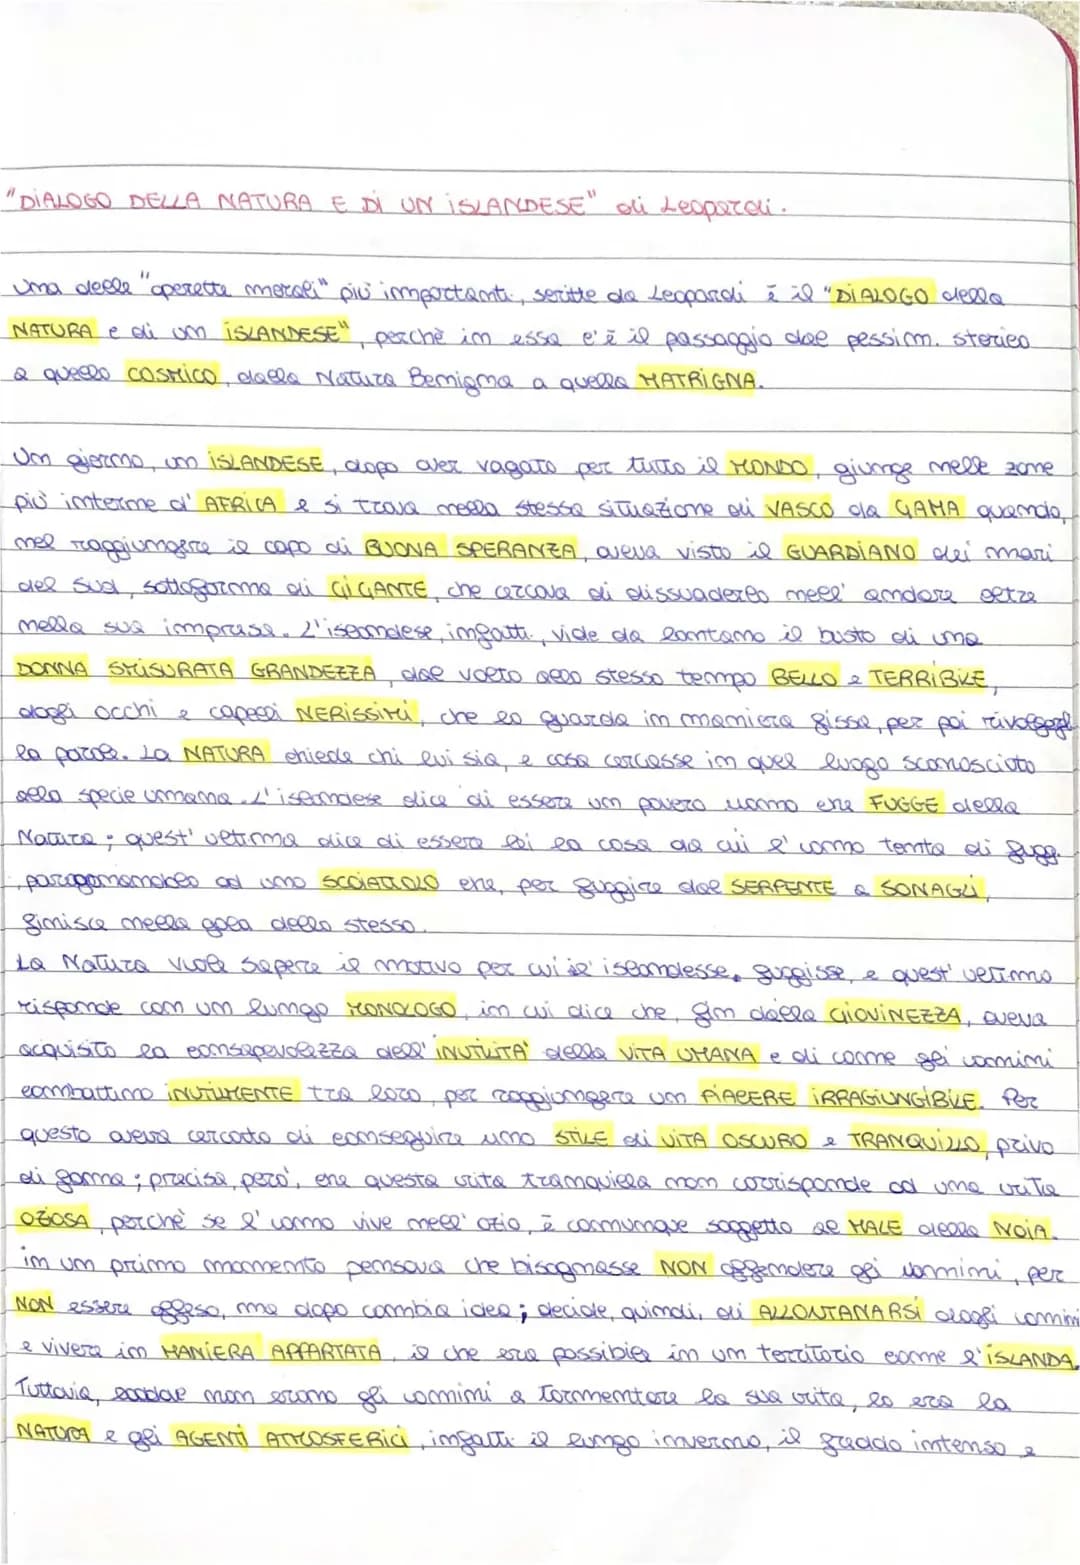 "DIALOGO DELLA NATURA E DI UN ISLANDESE" di Leopardi.
Una delle "operette morali" più importanti, scritte da Leopardi è il "DIALOGO della
NATURA e di un ISLANDESE", perchè in essa c'è il passaggio dal pessim. storico
a quello COSMICO, dalla Natura Benigna a quella MATRIGNA.
Un giorno, un ISLANDESE, dopo aver vagato per tutto il MONDO, giunge nelle zone
più interne d'AFRICA e si trova nella stessa situazione di VASCO da GAMA quando,
nel raggiungere il capo di BUONA SPERANZA, aveva visto il GUARDIANO dei mari
del Sud, sottoforma di GIGANTE, che cercava di dissuaderlo nell'andare oltre
nella sua impresa. L'islandese, infatti, vide da lontano il busto di una
DONNA SMISURATA GRANDEZZA, dal volto allo stesso tempo BELLO e TERRIBILE,
dagli occhi e capelli NERISSIMI, che lo guarda in maniera fissa, per poi rivolgergli
la parola. La NATURA chiede chi lui sia, e cosa cercasse in quel luogo sconosciuto
alla specie umana. L'islandese dice di essere un povero uomo che FUGGE della
Natura; quest'ultima dice di essere lei la cosa da cui l'uomo tenta di fugg.
paragonandolo ad uno SCOIATTOLO che, per fuggire dal SERPENTE a SONAGLI,
finisce nella gola dello stesso.
La Natura vuole sapere il motivo per cui l'islandesse, fuggisse, e quest'ultimo
risponde con un lungo MONOLOGO, in cui dice che, fin dalla GIOVINEZZA, aveva
acquisito la consapevolezza dell'INUTILITA' della VITA UMANA e di come gli uomini
combattino INUTILMENTE tra loro, per raggiungere un PIACERE IRRAGIUNGIBILE. Per
questo aveva cercato di conseguire uno STILE di VITA OSCURO e TRANQUILLO, privo
di fama; precisa, però, che questa vita tranquilla non corrisponde ad una vita
OZIOSA, perchè se l'uomo vive nell'ozio, è comunque soggetto al MALE della NOIA.
in un primo momento pensava che bisognasse NON offendere gli uomini, per
NON essere offeso, ma dopo cambia idea; decide, quindi, di ALLONTANARSI dagli uomini
e vivere in MANIERA APPARTATA, il che era possibile in un territorio come l'ISLANDA.
Tuttavia, laddove non erano gli uomini a tormentare la sua vita, lo era la
NATURA e gli AGENTI ATMOSFERICI, infatti il lungo inverno, il freddo intenso e